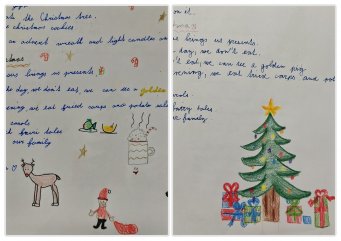 the Christmas tree.
christmas cookies
an advent wreath and light candles on
brings us presents
the day, we don't eat, we can see a golden
evening, we eat fried carps and potato sala
carols
tales
our family
on it.
brings us presents.
day, we don't eat.
eat, we can see a golden pig.
evening, we eat fried carps and pot
carols.
tales
family